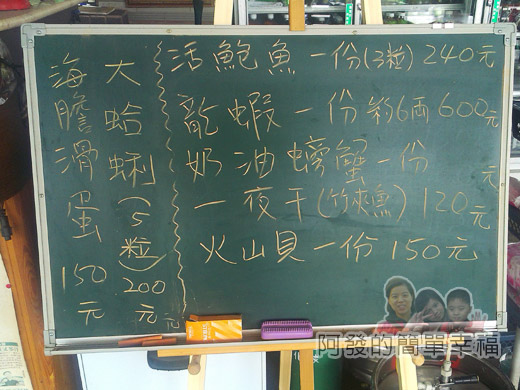 活鮑魚一份(3粒)240元
龍蝦一份約6両600元
奶油螃蟹一份 元
一夜干(竹夾魚)120元
火山貝一份150元
大蛤蜊(5粒)200元
海膽滑蛋150元
阿發的簡單幸福